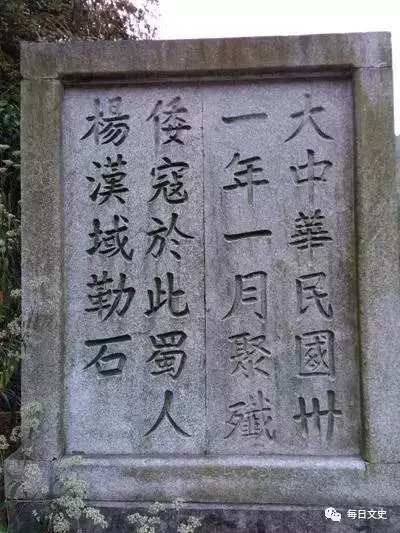 大中華民國卅
一年一月聚殲
倭寇於此蜀人
楊漢域勒石
每日文史